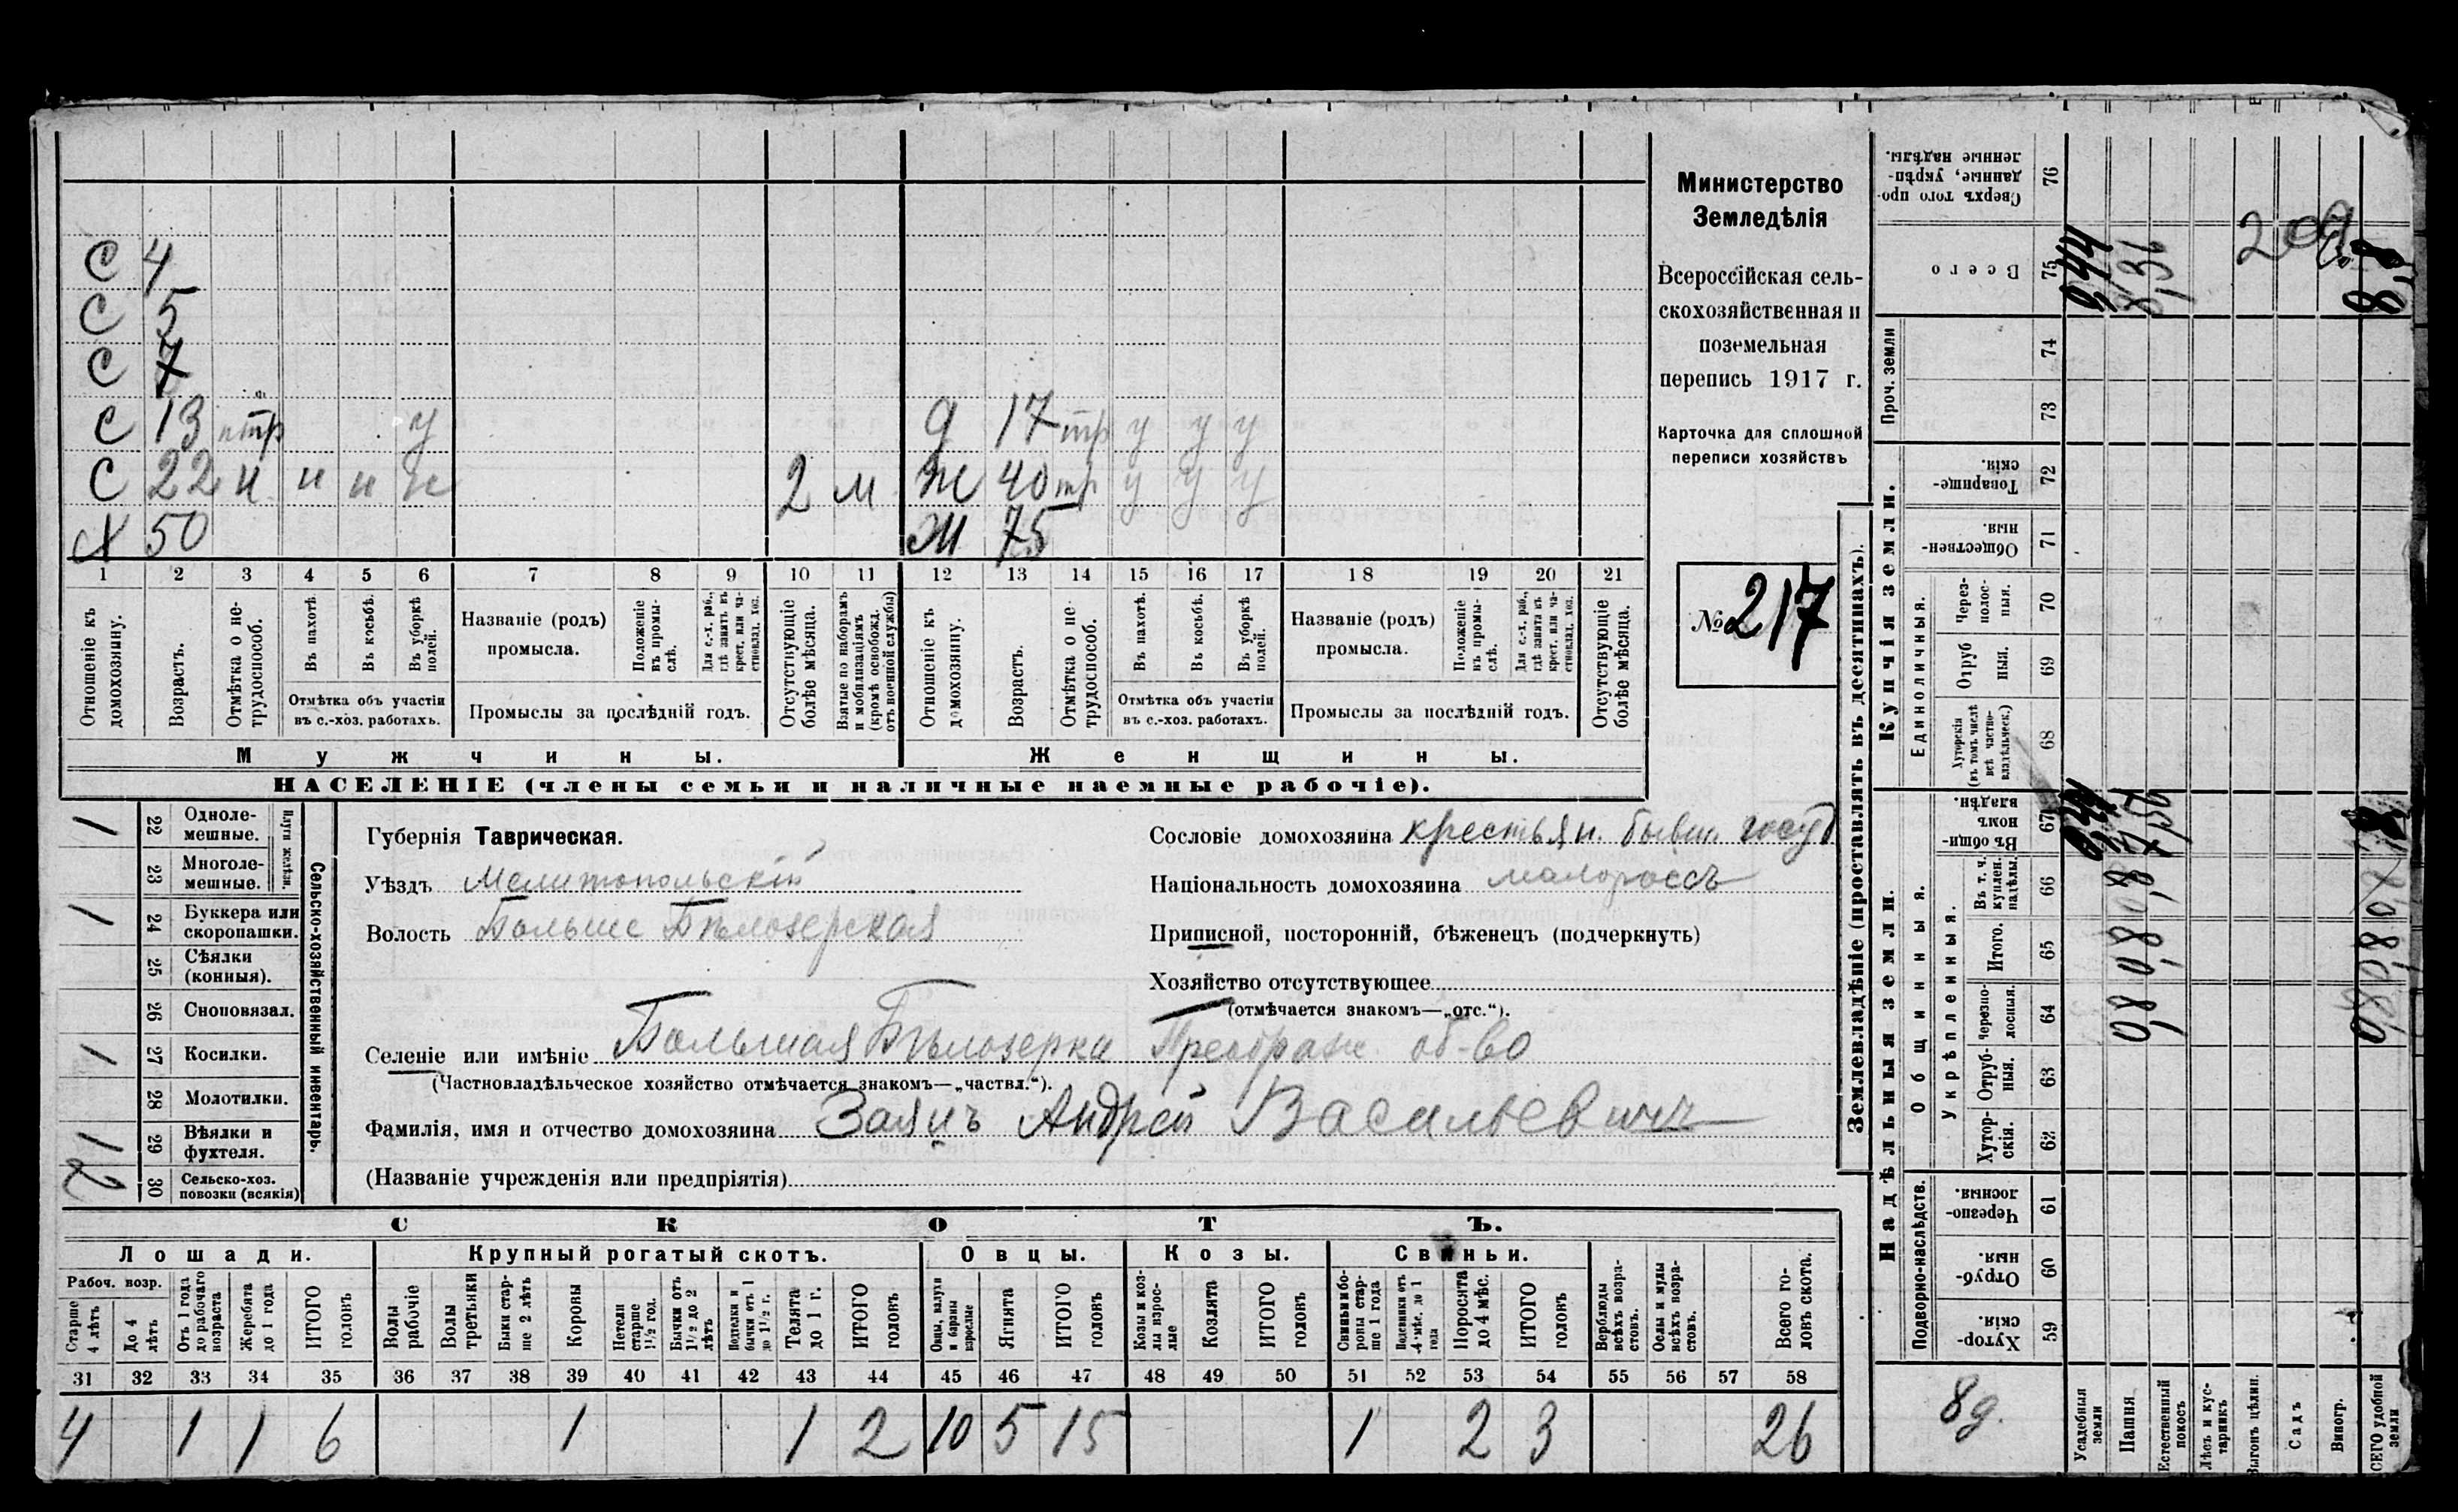 С 4
С 5
С 7
С 13 птр у д 17 тр у у у
С 22 н н н н 2 м Ж 40 тр у у у
Х 50 Ж 75
1 2 3 4 5 6 7 8 9 10 11 12 13 14 15 16 17 18 19 20 21
Отношеніе къ домохозяину.
Возрастъ.
Отмѣтка о не-трудоспособ.
Въ пахотѣ.
Въ косьбѣ.
Въ уборкѣ полей.
Отмѣтка объ участіи
въ с.-хоз. работахъ.
Названіе (родъ)
промысла.
Положеніе въ промы-слѣ.
Для с.-х. раб., гдѣ занятъ въ крест. или ча-стновлад. хоз.
Промыслы за послѣдній годъ.
Отсутствующіе болѣе мѣсяца.
Взятые по наборамъ и мобилизаціямъ (кромѣ освобожд. отъ военной службы)
Отношеніе къ домохозяину.
Возрастъ.
Отмѣтка о не-трудоспособ.
Въ пахотѣ.
Въ косьбѣ.
Въ уборкѣ полей.
Отмѣтка объ участіи
въ с.-хоз. работахъ.
Названіе (родъ)
промысла.
Положеніе въ промы-слѣ.
Для с.-х. раб., гдѣ занята въ крест. или ча-стновлад. хоз.
Промыслы за послѣдній годъ.
Отсутствующіе болѣе мѣсяца.
Мужчины. Женщины.
НАСЕЛЕНІЕ (члены семьи и наличные наемные рабочіе).
Министерство
Земледѣлія
Всероссійская сель-
скохозяйственная и
поземельная
перепись 1917 г.
Карточка для сплошной
переписи хозяйствъ
№ 217
1 22 Одноле-мешные.
23 Многоле-мешные.
Плуги желѣзн.
1 24 Буккера или скоропашки.
25 Сѣялки (конныя).
26 Сноповязал.
1 27 Косилки.
28 Молотилки.
1 29 Вѣялки и фухтеля.
2 30 Сельско-хоз. повозки (всякія)
Сельско-хозяйственный инвентарь.
Губернія Таврическая.
Уѣздъ Мелитопольскій
Волость Больше Бѣлозерская
Сословіе домохозяина крестьян. бывш. госуд
Національность домохозяина малороссъ
Приписной, посторонній, бѣженецъ (подчеркнуть)
Хозяйство отсутствующее
(отмѣчается знакомъ—„отс.“).
Селеніе или имѣніе Большая Бѣлозерка Преображ. об-во
(Частновладѣльческое хозяйство отмѣчается знакомъ—„частвл.“).
Фамилія, имя и отчество домохозяина Заяцъ Андрей Васильевичъ
(Названіе учрежденія или предпріятія)
СКОТЪ.
Лошади. Крупный рогатый скотъ. Овцы. Козы. Свиньи.
Рабоч. возр.
Старше 4 лѣтъ
До 4 лѣтъ
Отъ 1 года до рабочаго возраста
Жеребята до 1 года
ИТОГО головъ
Волы рабочіе
Волы третьяки
Быки стар-ше 2 лѣтъ
Коровы
Нетели старше 1½ год.
Бычки отъ 1½ до 2 лѣтъ
Подтелки и бычки отъ 1 до 1½ г.
Телята до 1 г.
ИТОГО головъ
Овцы, валухи и бараны взрослые
Ягнята
ИТОГО головъ
Козы и коз-лы взрос-лые
Козлята
ИТОГО головъ
Свиньи и бо-ровы стар-ше 1 года
Подсвинки отъ 4 мѣс. до 1 года
Поросята до 4 мѣс.
ИТОГО головъ
Верблюды всѣхъ возра-стовъ.
Ослы и мулы всѣхъ возра-стовъ.
Всего го-ловъ скота.
31 32 33 34 35 36 37 38 39 40 41 42 43 44 45 46 47 48 49 50 51 52 53 54 55 56 57 58
4 1 1 6 1 1 2 10 5 15 1 2 3 26
Землевладѣніе (проставлять въ десятинахъ).
Сверхъ того про-данные, укрѣп-ленные надѣлы. 76
Всего 75
Проч. земли 74
73
Купчія земли.
Товарище-скія. 72
Обществен-ныя. 71
Единоличныя.
Через-полос-ныя. 70
Отруб-ныя. 69
Хуторскія (въ томъ числѣ всѣ частно-владѣльческ.) 68
Надѣльныя земли.
Общинныя.
Въ общин-номъ владѣн. 67
Укрѣпленныя.
Въ т. ч. куплен. надѣлы. 66
Итого. 65
Черезпо-лосныя. 64
Отруб-ныя. 63
Хутор-скія. 62
Подворно-наслѣдств.
Черезпо-лосныя. 61
Отруб-ныя. 60
Хутор-скія. 59
8 д.
Усадебныя земли
Пашня
Естественный покосъ
Лѣсъ и кус-тарникъ
Выгонъ цѣлин.
Садъ
Виногр.
ВСЕГО удобной земли